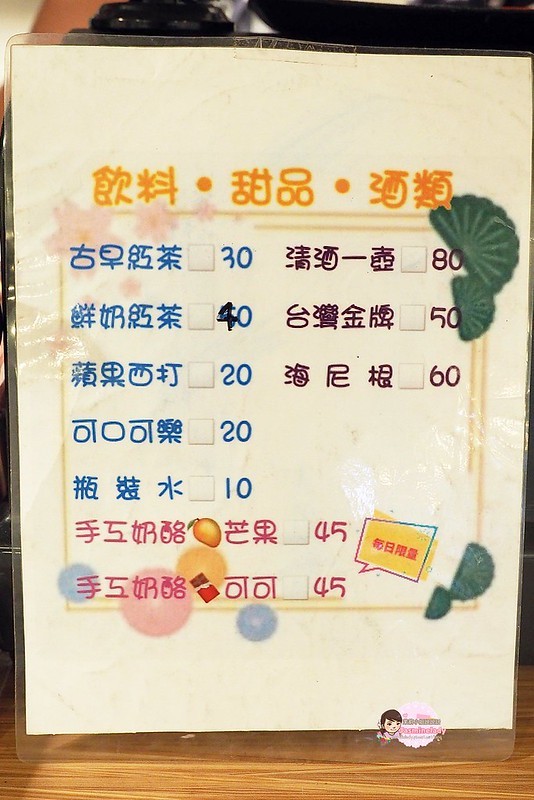 飲料・甜品・酒類
古早紅茶 30
清酒一壺 80
鮮奶紅茶 40
台灣金牌 50
蘋果西打 20
海尼根 60
可口可樂 20
瓶裝水 10
手工奶酪 芒果 45
每日限量
手工奶酪 可可 45
Jasminelady